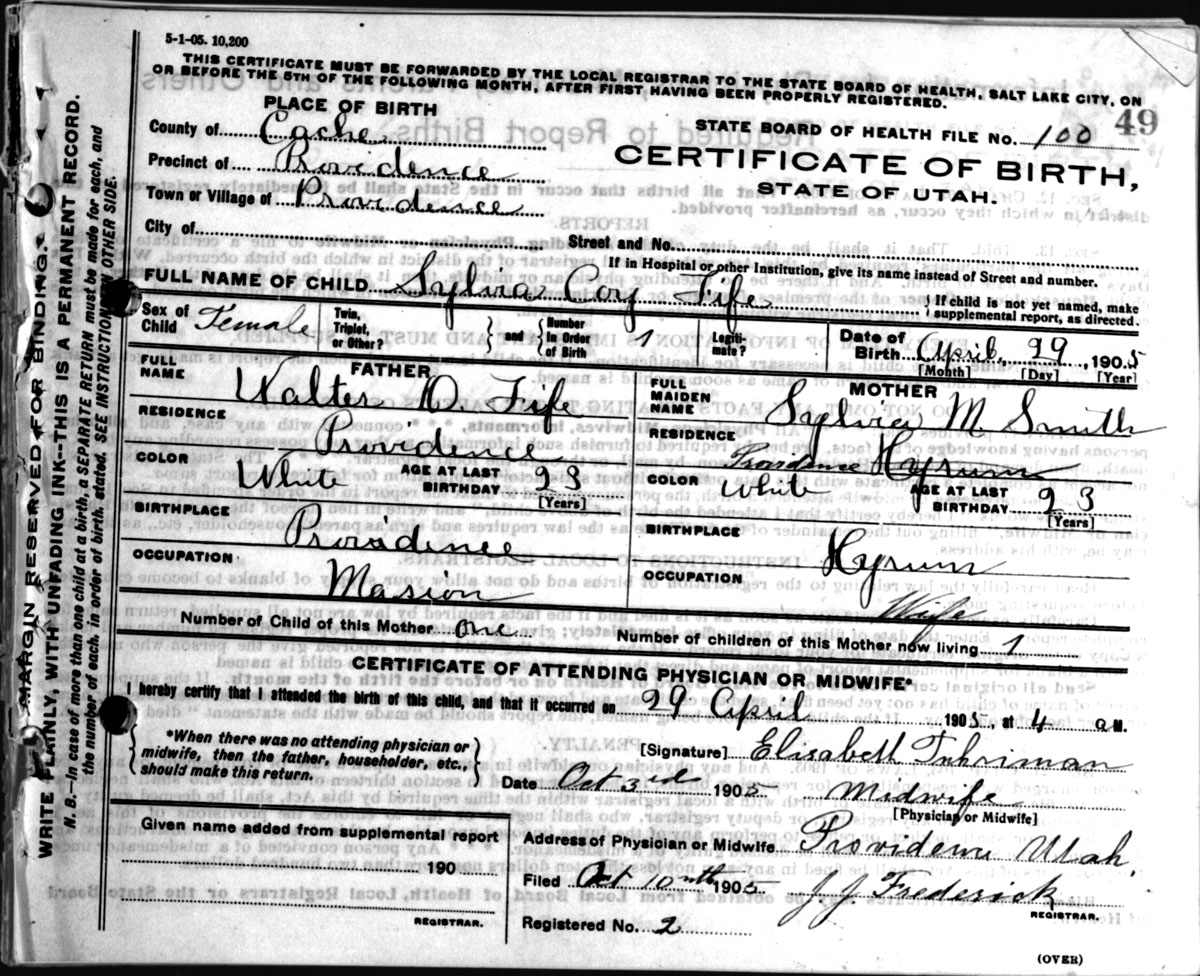 5-1-05. 10,200
THIS CERTIFICATE MUST BE FORWARDED BY THE LOCAL REGISTRAR TO THE STATE BOARD OF HEALTH, SALT LAKE CITY, ON
OR BEFORE THE 5TH OF THE FOLLOWING MONTH, AFTER FIRST HAVING BEEN PROPERLY REGISTERED.
49
PLACE OF BIRTH
STATE BOARD OF HEALTH FILE No. 100
County of Cache
CERTIFICATE OF BIRTH,
Precinct of Providence
STATE OF UTAH.
Town or Village of Providence
City of
Street and No.
If in Hospital or other Institution, give its name instead of Street and number.
FULL NAME OF CHILD Sylvia Coy Fife
If child is not yet named, make supplemental report, as directed.
Sex of Child Female Twin, Triplet, or Other? and Number in Order of Birth 1 Legitimate? Date of Birth April, 29, 1905
[Month] [Day] [Year]
FATHER
FULL NAME Walter O. Fife
MOTHER
FULL MAIDEN NAME Sylvia M. Smith
RESIDENCE Providence
RESIDENCE Providence Hyrum
COLOR White AGE AT LAST BIRTHDAY 23
[Years]
COLOR White AGE AT LAST BIRTHDAY 23
[Years]
BIRTHPLACE Providence
BIRTHPLACE Hyrum
OCCUPATION Masion
OCCUPATION Wife
Number of Child of this Mother one
Number of children of this Mother now living 1
CERTIFICATE OF ATTENDING PHYSICIAN OR MIDWIFE*
I hereby certify that I attended the birth of this child, and that it occurred on 29 April 1905 at 4 a M.
*When there was no attending physician or
midwife, then the father, householder, etc.,
should make this return.
[Signature] Elisabeth Fuhriman
Date Oct 3rd 1905 Midwife
[Physician or Midwife]
Given name added from supplemental report
190
REGISTRAR.
Address of Physician or Midwife Providence Utah
Filed Oct 10nth 1905 J J Frederick
REGISTRAR.
Registered No. 2
(OVER)
MARGIN RESERVED FOR BINDING.
WRITE PLAINLY, WITH UNFADING INK--THIS IS A PERMANENT RECORD.
N. B.--In case of more than one child at a birth, a SEPARATE RETURN must be made for each, and
the number of each, in order of birth, stated. SEE INSTRUCTIONS ON OTHER SIDE.